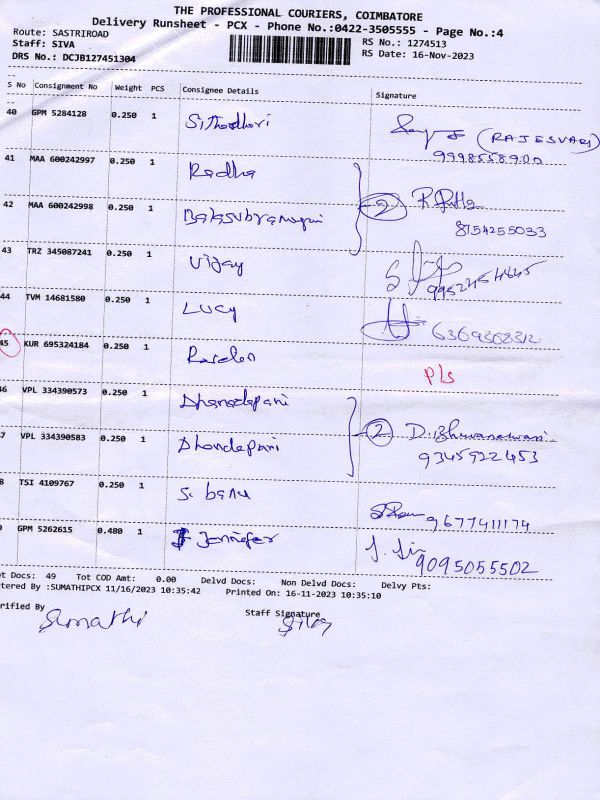 THE PROFESSIONAL COURIERS, COIMBATORE
Delivery Runsheet - PCX - Phone No.:0422-3505555 - Page No.:4
Route: SASTRIROAD RS No.: 1274513
Staff: SIVA RS Date: 16-Nov-2023
DRS No.: DCJB127451304
S No Consignment No Weight PCS Consignee Details Signature
40 GPM 5284128 0.250 1 (RAJESVARI)
9998558900
41 MAA 600242997 0.250 1 Radha
42 MAA 600242998 0.250 1 2
8154255033
43 TRZ 345087241 0.250 1 Vijay
44 TVM 14681580 0.250 1 Lucy 6369308312
45 KUR 695324184 0.250 1 P/s
6 VPL 334390573 0.250 1 Dhandapani
7 VPL 334390583 0.250 1 Dhandapani 2 D.Bhuvaneswari
9345922453
8 TSI 4109767 0.250 1 S. banu 9677411174
9 GPM 5262615 0.480 1 J Jennifer 9095055502
t Docs: 49 Tot COD Amt: 0.00 Delvd Docs: Non Delvd Docs: Delvy Pts:
tered By :SUMATHIPCX 11/16/2023 10:35:42 Printed On: 16-11-2023 10:35:10
rified By Staff Signature
Sumathi Siva